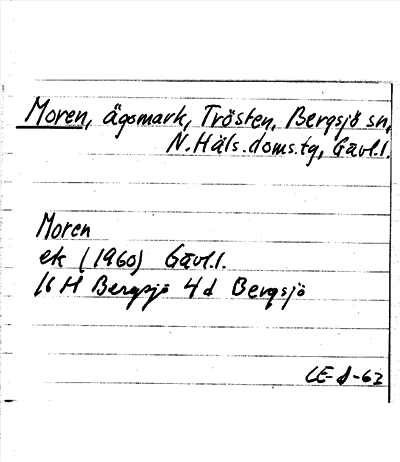 Moren, ägomark, Trösten, Bergsjö sn,
N. Häls. doms. tg, Gävl.l.
Moren
ek (1960) Gävl.l.
16 H Bergsjö 4 d Bergsjö